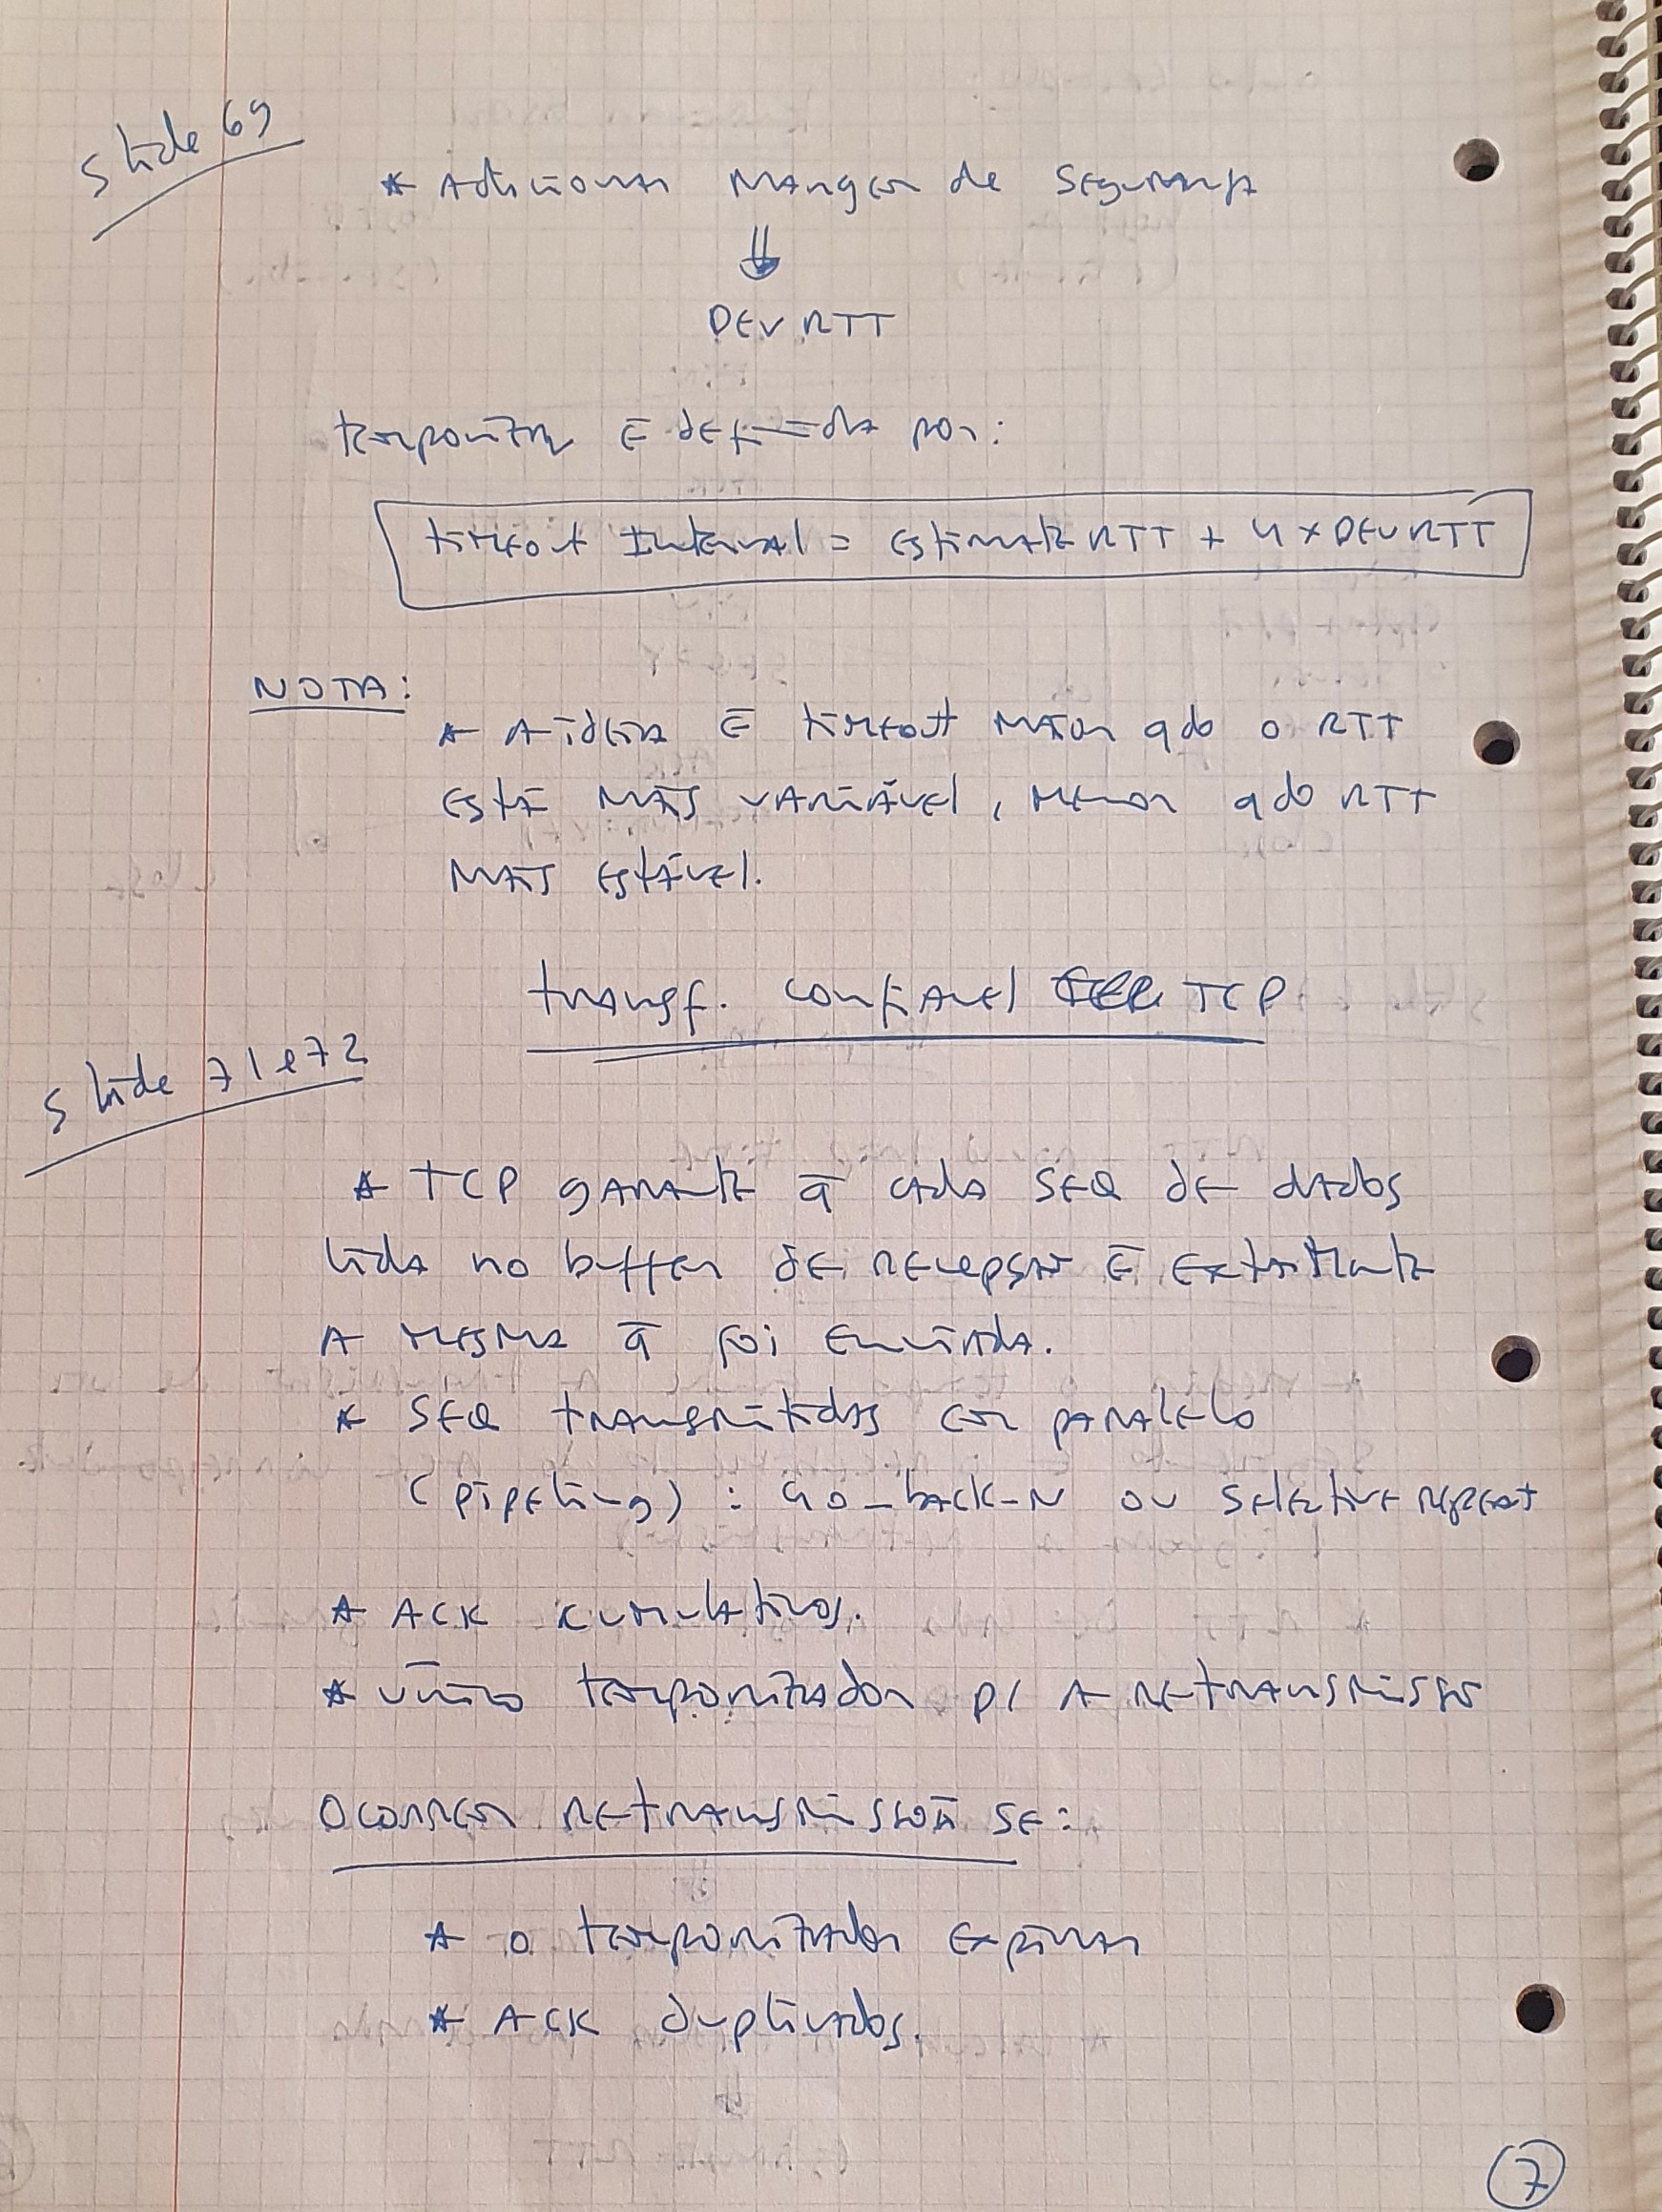 Slide 69
* Adicionar Margem de Segurança
⇓
DEVRTT
temporizar é definida por:
timeout Interval = EstimateRTT + 4 x DEVRTT
NOTA:
* A ideia é timeout maior qdo o RTT
está mais variável, menor qdo RTT
mais estável.
transf. confiavel TCP
Slide 71 e 72
* TCP garante q̄ cada SEQ de dados
lida no buffer de recepção é exatamente
a mesma q̄ foi enviada.
* SEQ transmitidas em paralelo
(pipeling) : Go-back-N ou Selective repeat
* ACK cumulativos.
* único temporizador p/ a retransmissão
Ocorrem retransmissoã se:
* o temporizador expirar
* ACK duplicados.
7